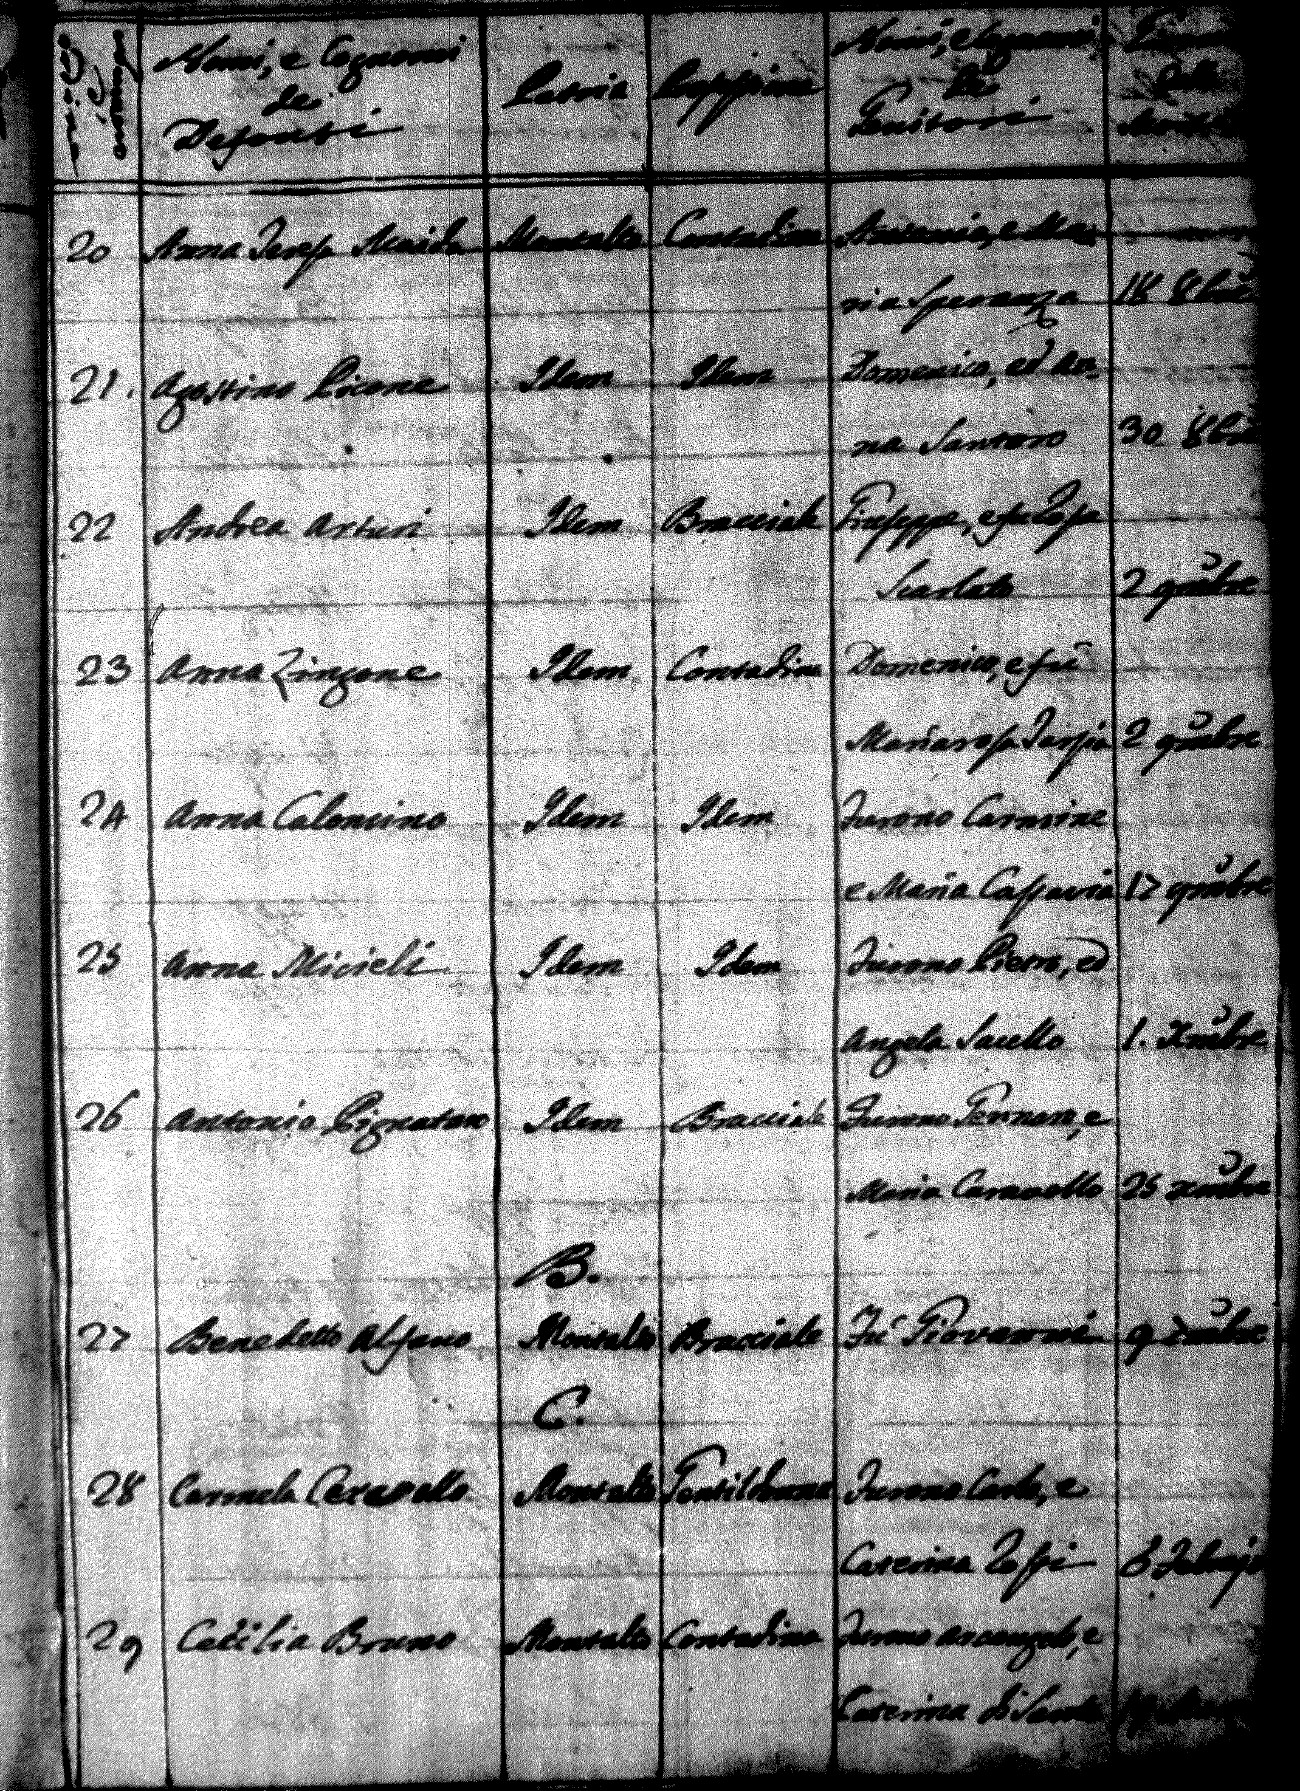 Nomi, e Cognomi
de
Defonti
Patria
Professione
Nomi, e Cognomi
de
Genitori
20 Anna Teresa Montalto Contadina Antonio, e Ma
ria Speranza 18 8bre
21. Agostino Picone Idem Idem Domenico, ed An
na Santoro 30 8bre
22 Andrea Arturi Idem Bracciale Giuseppe, e fu Rosa
Scarlato 2 9mbre
23 Anna Zingone Idem Contadina Domenico, e fu
Mariarosa Tarsia 2 9mbre
24 Anna Calomino Idem Idem Furono Carmine
e Maria Cassavia 17 9mbre
25 Anna Micieli Idem Idem Furono Pietro, ed
Angela Sacello 1. Xmbre
26 Antonio Pignataro Idem Bracciale Furono Gennaro, e
Maria Caravetto 25 Xmbre
B.
27 Benedetto Alfano Montalto Bracciale Fu Giovanni 9 Xmbre
C.
28 Carmela Montalto Gentildonna Furono Carlo, e
Caterina Rossi
29 Cecilia Bruno Montalto Contadina Furono Arcangelo, e
Caterina di Santo